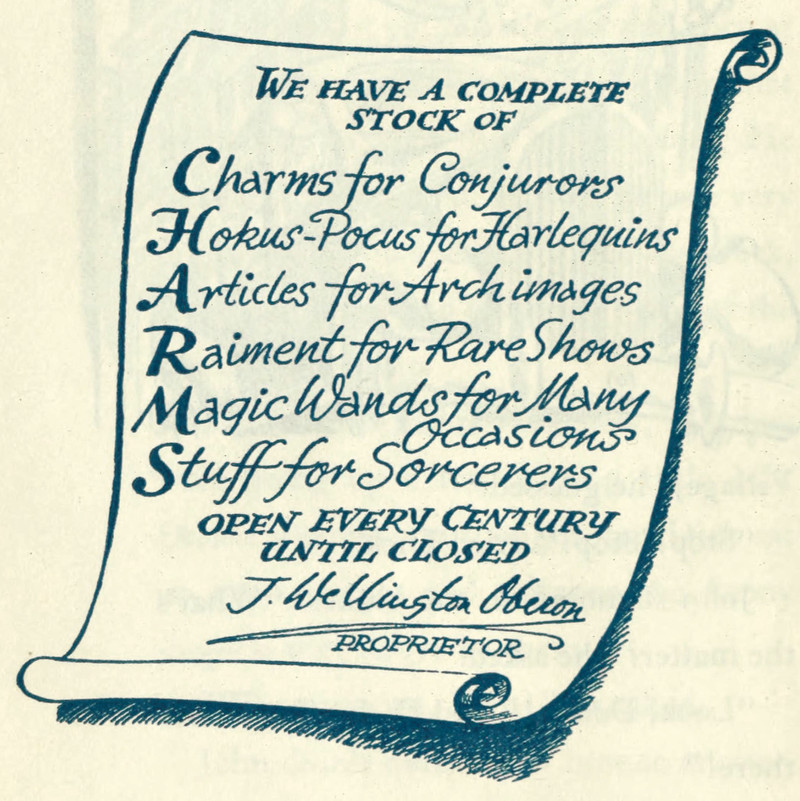 WE HAVE A COMPLETE
STOCK OF
Charms for Conjurors
Hokus-Pocus for Harlequins
Articles for Archimages
Raiment for Rare Shows
Magic Wands for Many
Occasions
Stuff for Sorcerers
OPEN EVERY CENTURY
UNTIL CLOSED
J. Wellington Oberon
PROPRIETOR